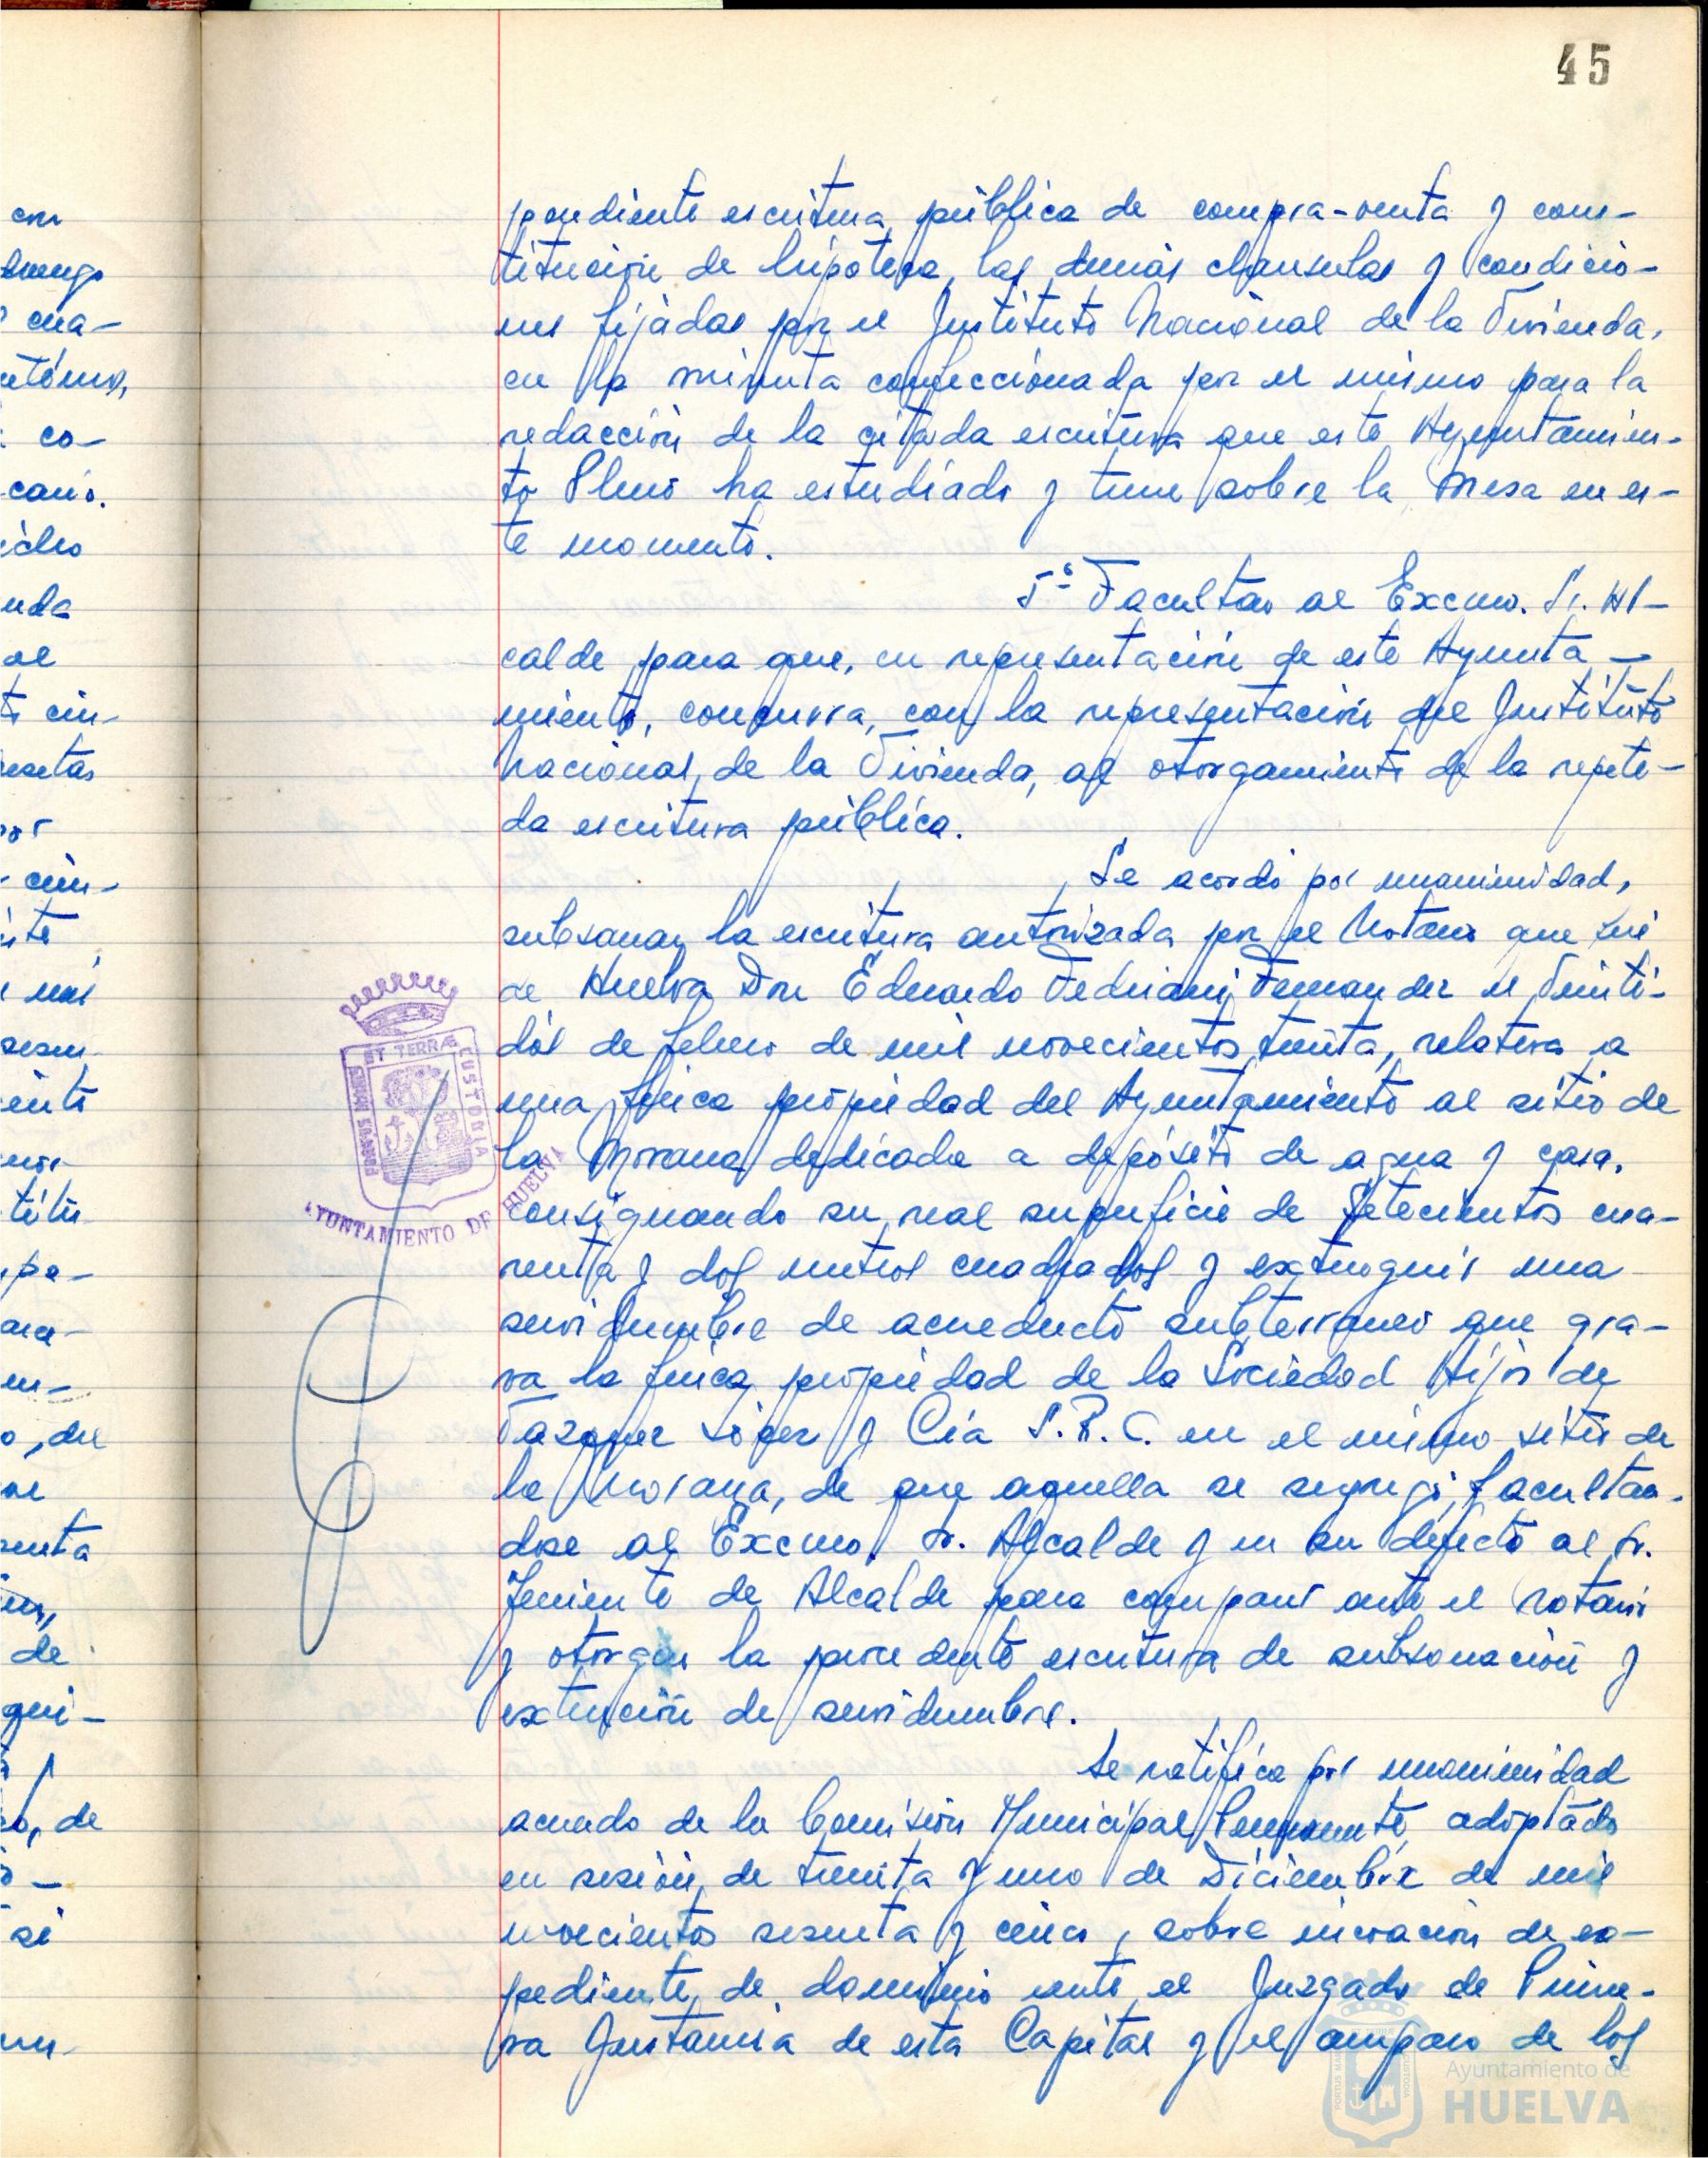 45
pondiente escritura pública de compra-venta y cons-
titución de hipoteca, las demás clausulas y condicio-
nes fijadas por el Instituto Nacional de la Vivienda,
en la minuta confeccionada por el mismo para la
redacción de la citada escritura que este Ayuntamien-
to Pleno ha estudiado y tiene sobre la Mesa en es-
te momento.
5º Facultar al Excmo. Sr. Al-
calde para que, en representación de este Ayunta-
miento, concurra, con la representación del Instituto
Nacional de la Vivienda, al otorgamiento de la repeti-
da escritura pública.
Se acordó por unanimidad,
subsanar la escritura autorizada por el Notario que fué
de Huelva Don Eduardo Fedriani Fernandez el Veinti-
dós de febrero de mil novecientos treinta, relativa a
una finca propiedad del Ayuntamiento al sitio de
la Morana dedicada a depósito de agua y casa,
consignando su real superficie de Setecientos cua-
renta y dos metros cuadrados y extinguir una
servidumbre de acueducto subterraneo que gra-
va la finca propiedad de la Sociedad Hijos de
Vazquez López y Cía S.R.C. en el mismo sitio de
la Morana, de que aquella se segregó, facultan-
dose al Excmo. Sr. Alcalde y en su defecto al Sr.
Teniente de Alcalde para comparecer ante el Notario
y otorgar la procedente escritura de subsanación y
extinción de servidumbre.
Se ratifica por unanimidad
acuerdo de la Comisión Municipal Permanente, adoptado
en sesión de treinta y uno de Diciembre de mil
novecientos sesenta y cinco, sobre incoación de ex-
pediente de dominio ante el Juzgado de Prime-
ra Instancia de esta Capital y el amparo de los
PORTUS MARIS ET TERRÆ CUSTODIA
AYUNTAMIENTO DE HUELVA
Ayuntamiento de
HUELVA